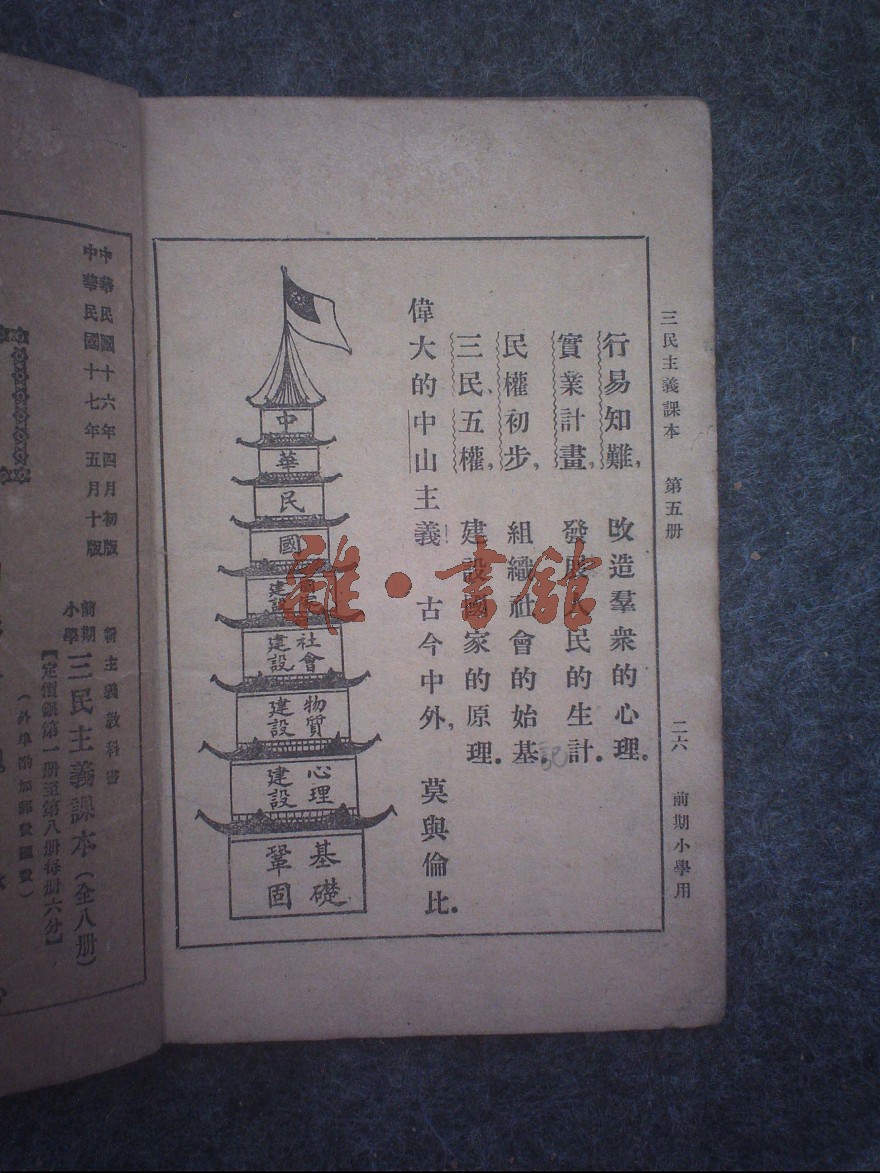 三民主義課本 第五册 二六 前期小學用
行易知難, 改造羣衆的心理.
實業計畫, 發展人民的生計.
民權初步, 組織社會的始基.
三民、五權, 建設國家的原理.
偉大的中山主義! 古今中外, 莫與倫比.
中
華
民
國
建設
社會建設
物質建設
心理建設
基礎鞏固
雜·書館
新主義教科書
前期小學 三民主義課本(全八册)
【定價銀第一册至第八册每册六分】
(外埠酌加郵費匯費)
中華民國十六年四月初版
中華民國十七年五月十版